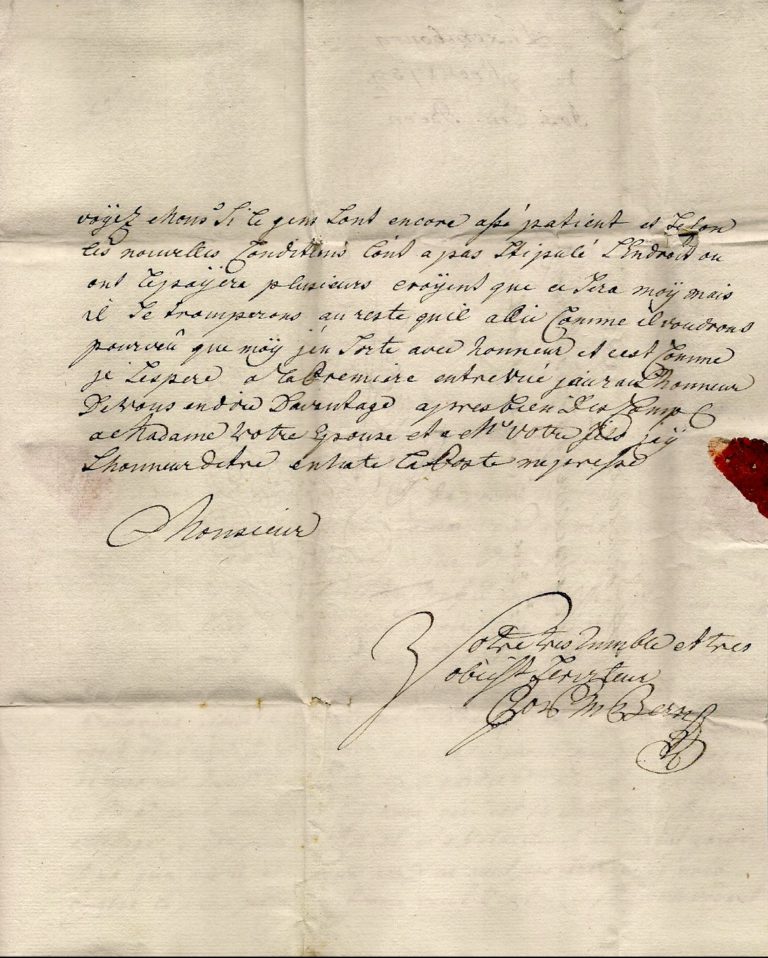 voÿez Mons.r Si le gens sont encore assé patient et selon
les nouvelles Conditions l'ont a pas Stipulé L'Endroit ou
ont le paÿera plusieurs croÿent que ce sera moÿ mais
il Se tromperons au reste qu'il allie Comme il voudrons
pourveû que moÿ j'en sorte avec honneur et c'est Comme
je L'espere a la Premiere entrevûe j'aurai L'honneur
De vous en dire Davantage apres bien des Comp
a Madame Votre Epouse et a Mr Votre fils j'ÿ
L'honneur d'etre en hate la Poste me presse
Monsieur
Votre tres humble et tres
obeisst Serviteur
Bern